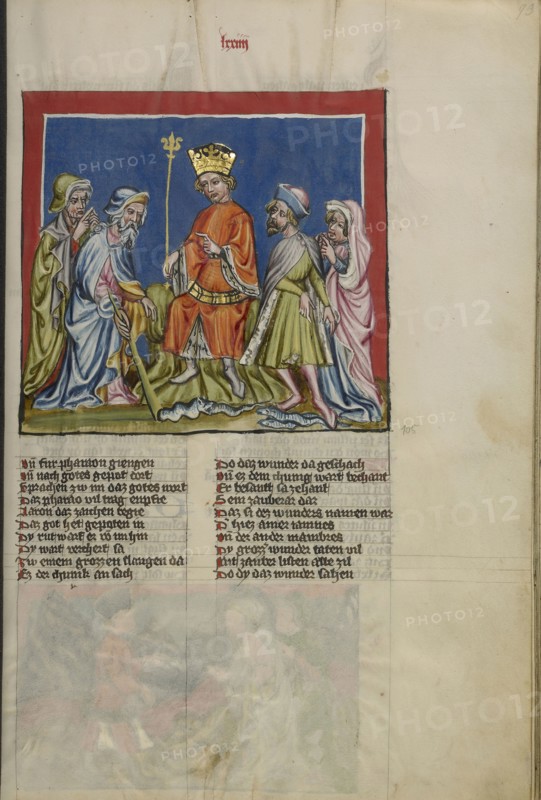 lxxiij
93
Vñ fur pharaon giengen
Vñ nach gotes gepot dort
Sprachen zw im daz gotes wort
Daz pharao vil trag enpfie
Aaron daz zaichen begie
Daz got het gepoten in
Dy rut warf er võ im hin
Dy wart verchert sa
Zw einem grozzen slangen da
Ez der chunik an sach
Do daz wunder da geschach
Vñ ez dem chunig wart bechant
Er besant sa zehant
Sein zaubrar dar
Daz si dez wunders namen war
D hiez ainer iannes
Vñ der ander mambres
Dy grozz wunder taten vil
Mit zauber listen alle zil
Do dy daz wunder sahen
PHOTO12